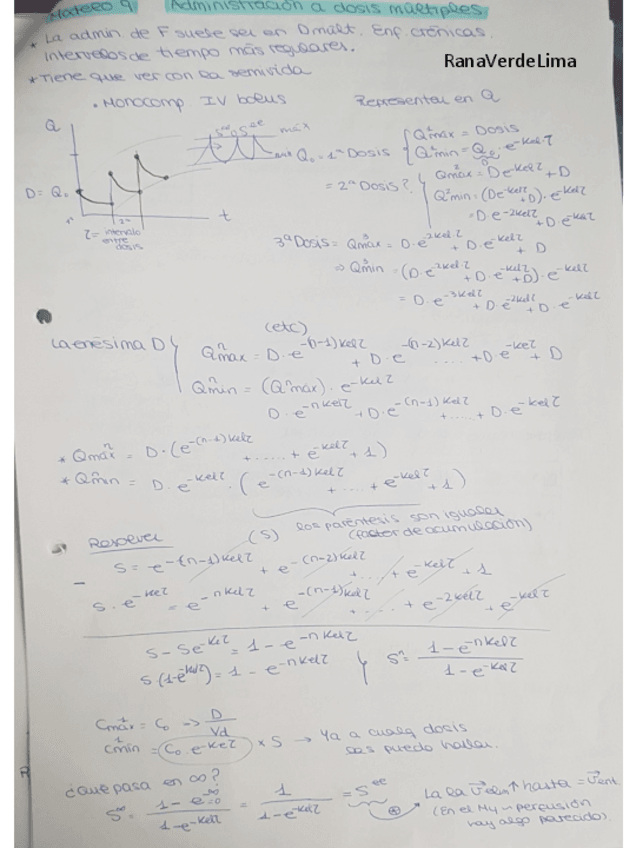 Administración a dosis múltiples
RanaVerdeLima
* La admin de F suele ser en D múlt. Enf. crónicas.
Intervalos de tiempo más regulares.
* Tiene que ver con la semivida
. Monocomp IV bolus
Representar en Q
Q
máx
D = Q₀
t
τ = intervalo
entre
dosis
Q₀ = 1ª Dosis { Q¹máx = Dosis
Q¹mín = Q₀ · e^-kel·τ
= 2ª Dosis? { Q²máx = D e^-kelτ + D
Q²mín = (D e^-kelτ + D) · e^-kelτ
= D · e^-2kelτ + D · e^-kelτ
3ª Dosis = Q³máx = D · e^-2kel·τ + D · e^-kelτ + D
⇒ Q³mín = (D · e^-2kel·τ + D · e^-kelτ + D) · e^-kelτ
= D · e^-3kelτ + D · e^-2kelτ + D · e^-kelτ
(etc)
La enésima D { Qⁿmáx = D · e^-(n-1)kelτ + D · e^-(n-2)kelτ ..... + D · e^-kelτ + D
Qⁿmín = (Qⁿmáx) · e^-kelτ
D · e^-nkelτ + D · e^-(n-1)kelτ + ..... + D · e^-kelτ
* Qⁿmáx = D · (e^-(n-1)kelτ + ..... + e^-kelτ + 1)
* Qⁿmín = D · e^-kelτ · (e^-(n-1)kelτ + ..... + e^-kelτ + 1)
(S) los paréntesis son iguales
(factor de acumulación)
Resolver
S = e^-(n-1)kelτ + e^-(n-2)kelτ + ..... + e^-kelτ + 1
S · e^-kelτ = e^-nkelτ + e^-(n-1)kelτ + ..... + e^-2kelτ + e^-kelτ
S - Se^-kelτ = 1 - e^-nkelτ
S (1-e^-kelτ) = 1 - e^-nkelτ } Sⁿ = 1-e^-nkelτ / 1-e^-kelτ
C¹máx = C₀ -> D / Vd
C¹mín = C₀ · e^-kelτ × S → Ya a cualq dosis
las puedo hallar.
¿Qué pasa en ∞?
S^∞ = 1-e^-∞=0 / 1-e^-kelτ = 1 / 1-e^-kelτ = S^ee
La elim ↑ hasta = Vent.
(En el M4 - perfusión
hay algo parecido).